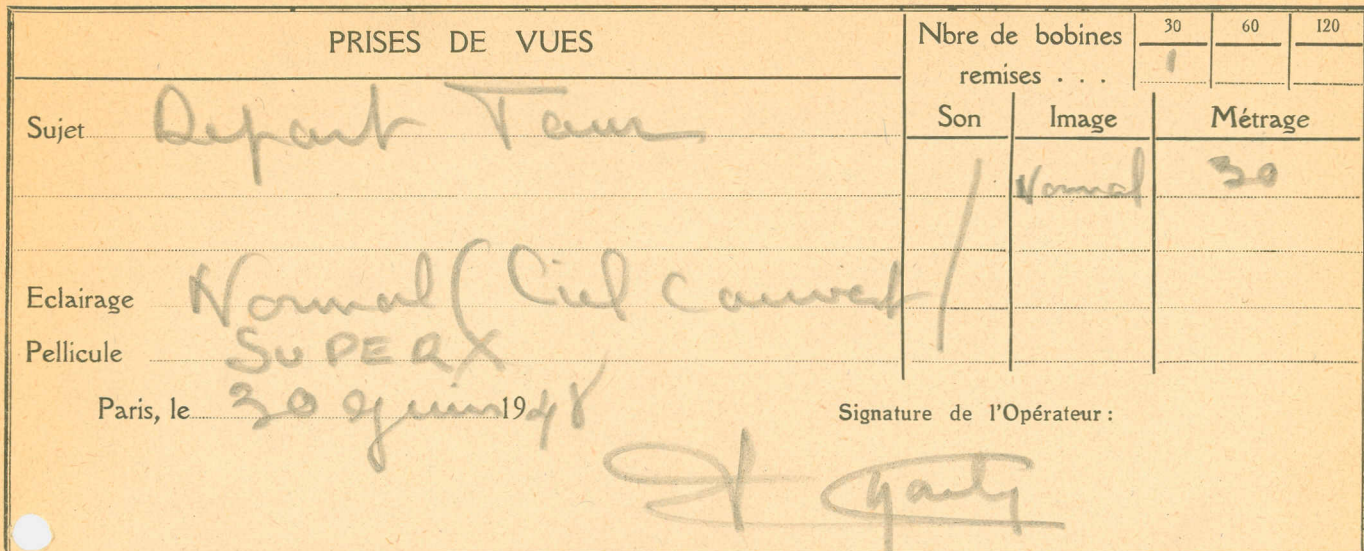 PRISES DE VUES
Nbre de bobines remises . . .
30 60 120
1
Sujet Depart Tour
Son Image Métrage
/ Normal 30
Eclairage Normal (Ciel Couvert)
Pellicule SUPERX
Paris, le 30 Juin 1948
Signature de l'Opérateur :